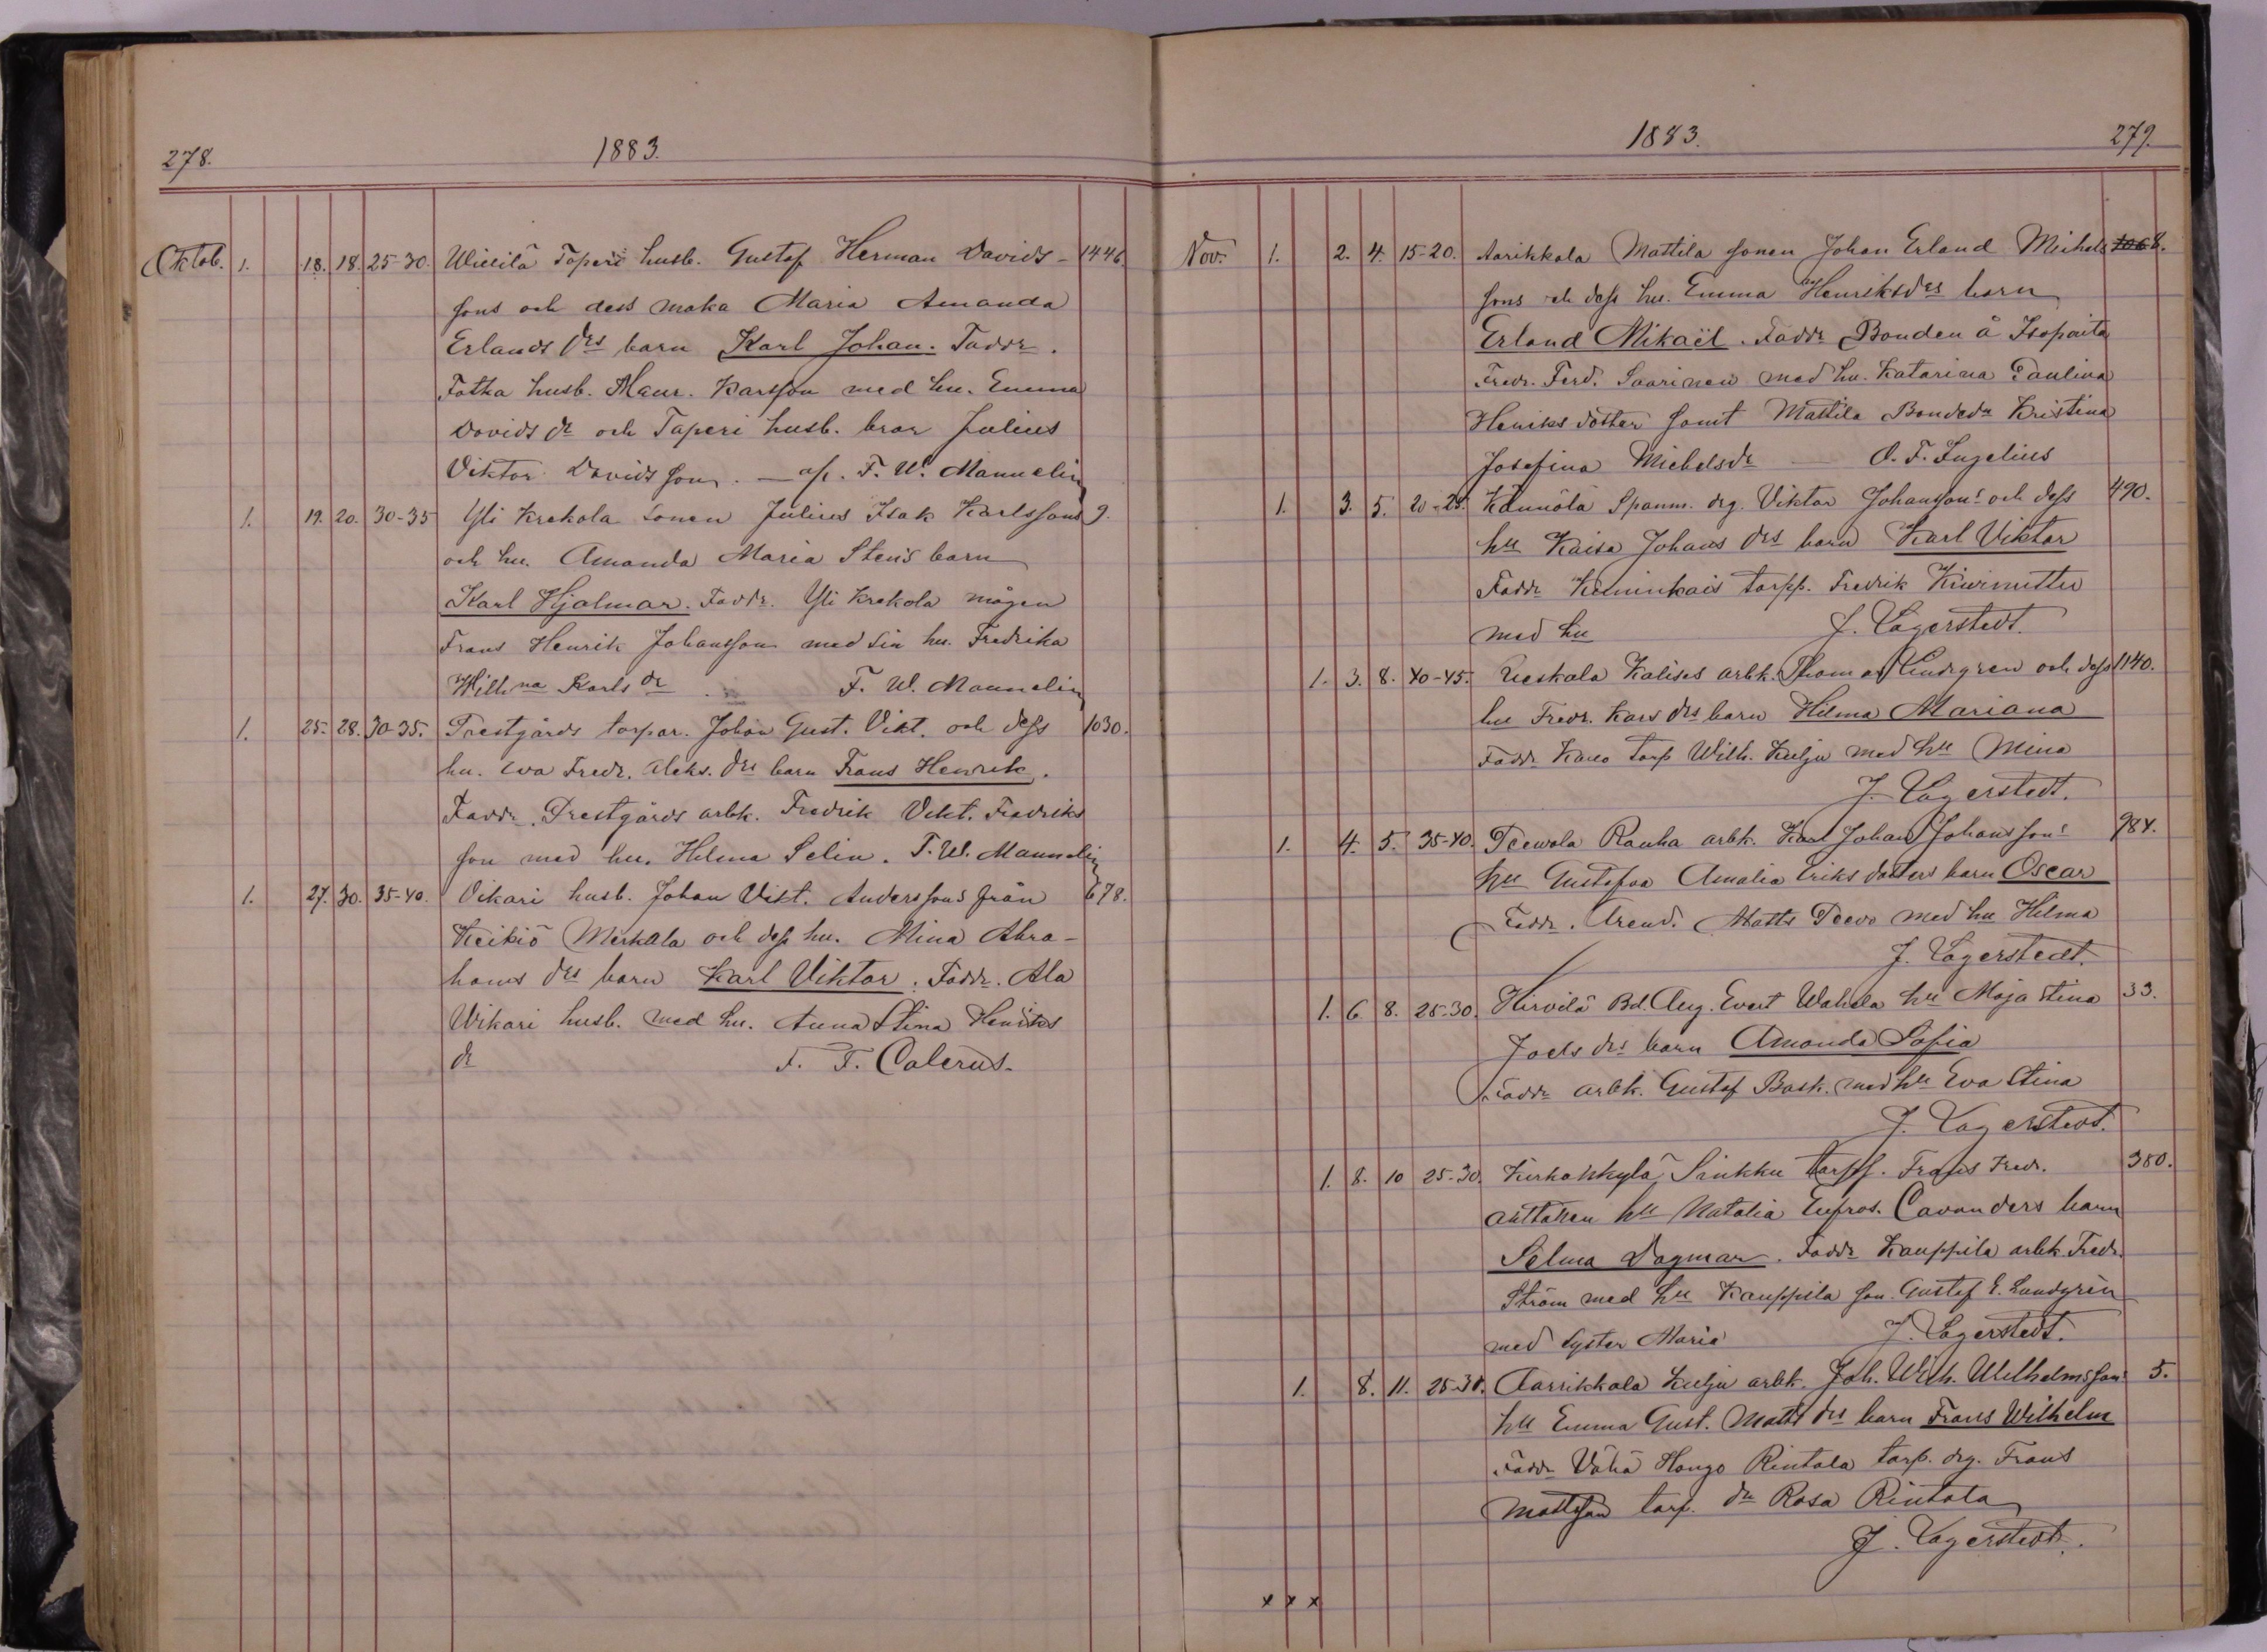 278.
1883.
Oktob. 1. 18. 18. 25-30. Willilä Taperi husb. Gustaf Herman Davids- 1446.
sons och dess maka Maria Amanda
Erlands drs barn Karl Johan. Faddr.
Fotka husb. Maur. Karlsson med hu. Emma
Davids dr och Taperi husb. bror Julius
Viktor Davidsson. — af. F. W. Mannelin
1. 19. 20. 30-35 Yli Krekola sonen Julius Isak Karlssons 9.
och hu. Amanda Maria Stens barn
Karl Hjalmar. Faddr. Yli Krekola mågen
Frans Henrik Johansson med sin hu. Fredrika
Wilhna Karls dr. F. W. Mannelin
1. 25. 28. 30-35. Prestgårds torpar. Johan Gust. Vikt. och dess 1030.
hu. Eva Fredr. Aleks. drs barn Frans Henrik.
Faddr. Prestgårds arbk. Fredrik Vikt. Fredriks
son med hu. Hilma Selin. F. W. Mannelin
1. 27. 30. 35-40. Vikari husb. Johan Vikt. Anderssons från 678.
Keikiö Merkala och dess hu. Mina Abra-
hams drs barn Karl Viktor. Faddr. Ala
Wikari husb. med hu. Anna Stina Henriks
dr F. F. Calerus.
1883.
279.
Nov. 1. 2. 4. 15-20. Aarikkala Mattila sonen Johan Erland Michels 8.
sons och dess hu. Emma Henriksdrs barn
Erland Mikaël. Faddr Bonden å Isopaita
Fredr. Ferd. Saarinen med hu. Katarina Paulina
Henriksdotter samt Mattila Bondedr Kristina
Josefina Michelsdr — O. F. Ingelius
1. 3. 5. 20-25. Kännölä Spanm. drg. Viktor Johanssons och dess 490.
hu Kaisa Johans drs barn Karl Viktor
Faddr Keminkais torpp. Fredrik Kiwinittu
med hu J. Lagerstedt.
1. 3. 8. 40-45. Ueskala Kalises arbk. Thomas Lindgren och dess 1140.
hu Fredr. Kars drs barn Hilma Mariana
Faddr Kauo torp Wilh. Kulju med hu Mina
J. Lagerstedt.
1. 4. 5. 35-40. Teewola Rauha arbk. Karl Johan Johanssons 984.
hu Gustafva Amalia Eriksdotters barn Oscar
Faddr. Arend. Matts Teevo med hu Hilma
J. Lagerstedt.
1. 6 8. 25-30. Hirvilä Bd. Aug. Evert Wahala hu Maja Stina 33.
Joels drs barn Amanda Sofia
Faddr arbk. Gustaf Bask. med hu Eva Stina
J. Lagerstedt.
1. 8. 10 25-30. Kirkonkylä Sinkku torpp. Frans Fredr. 380.
Anttonen hu Natalia Eufros. Cavanders barn
Selma Dagmar. Faddr Kauppila arbk. Fredr.
Ström med hu Kauppila son. Gustaf E. Lundgren
med syster Maria J. Lagerstedt.
1. 8. 11. 25-30. Aarrikkala Kulju arbk. Joh. Wilh. Wilhelmssons 5.
hu Emma Gust. Matts drs barn Frans Wilhelm
Faddr Vähä Hongo Rintala torp. drg. Frans
Mattsson torp. dr Rosa Rintala
J. Lagerstedt.
x x x